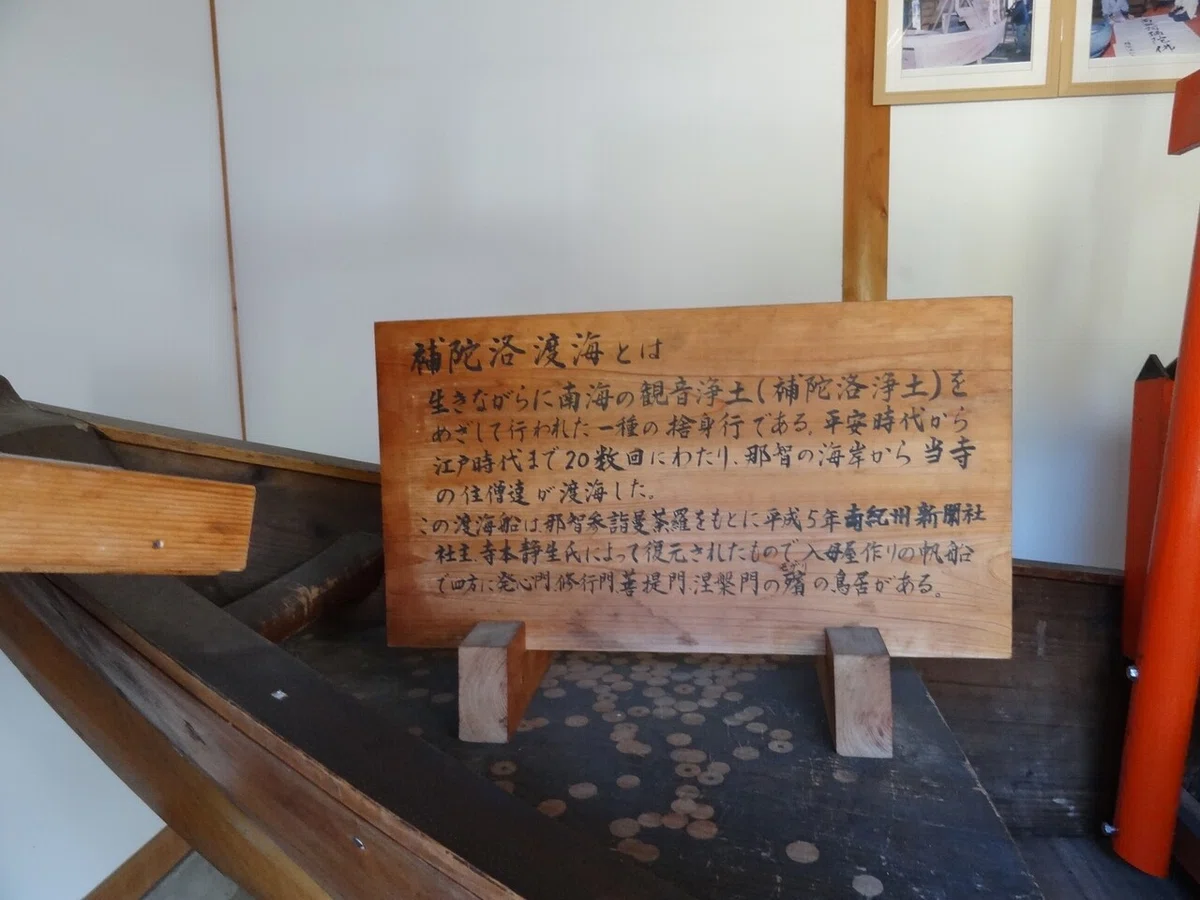 補陀洛渡海とは
生きながらに南海の観音浄土(補陀洛浄土)を
めざして行われた一種の捨身行である。平安時代から
江戸時代まで20数回にわたり、那智の海岸から当寺
の住僧達が渡海した。
この渡海船は那智参詣曼荼羅をもとに平成5年南紀州新聞社
社主、寺本静生氏によって復元されたもので、入母屋作りの帆船
で四方に発心門、修行門、菩提門、涅槃門の の鳥居がある。